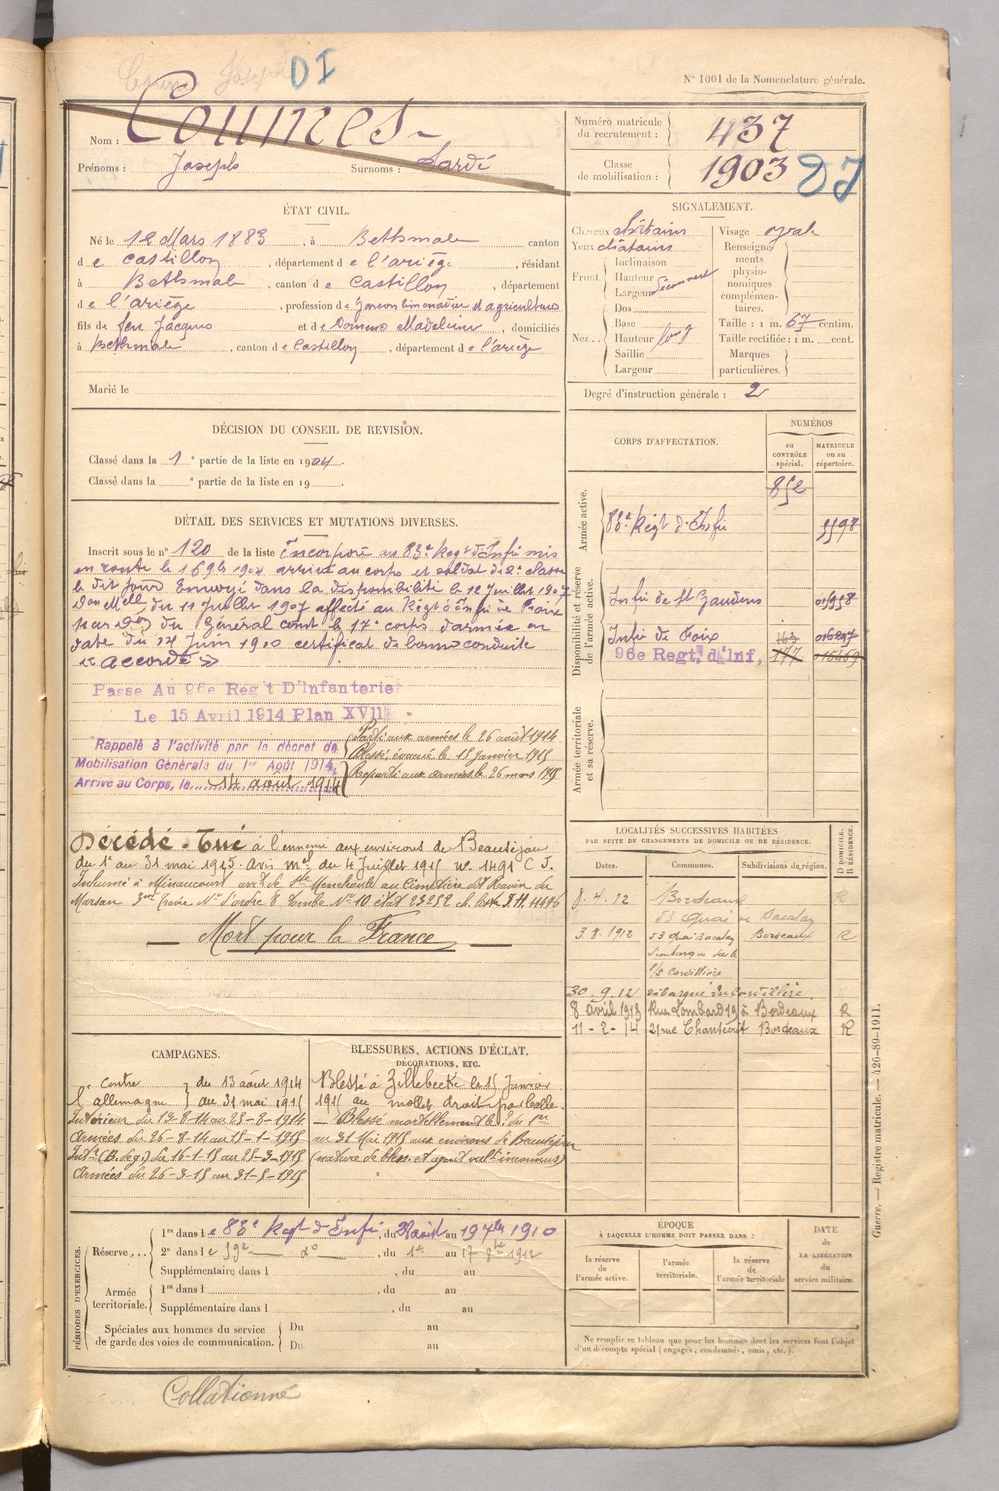 DI
N° 1001 de la Nomenclature générale.
Nom : Coumes
Prénoms : Joseph Surnoms : Sardé
Numéro matricule du recrutement : 437
Classe de mobilisation : 1903
ÉTAT CIVIL.
Né le 12 Mars 1883, à Bethmale canton
de Castillon, département de l'ariège, résidant
à Bethmale, canton de Castillon, département
de l'ariège, profession de
fils de feu Jacques et de Domenc Madeleine, domiciliés
à Bethmale, canton de Castillon, département de l'ariège
Marié le
SIGNALEMENT.
Cheveux châtains
Yeux châtains
Front. Inclinaison
Hauteur
Largeur découvert
Nez.. Dos
Base
Hauteur long
Saillie
Largeur
Visage ovale
Renseignements physionomiques complémentaires.
Taille : 1 m. 67 centim.
Taille rectifiée : 1 m. cent.
Marques particulières.
Degré d'instruction générale : 2
DÉCISION DU CONSEIL DE REVISION.
Classé dans la 1e partie de la liste en 1904.
Classé dans la e partie de la liste en 19
CORPS D'AFFECTATION.
NUMÉROS
au CONTRÔLE spécial.
MATRICULE ou au répertoire.
Armée active.
852
83e Régt d'Infie
Disponibilité et réserve de l'armée active.
Infie de St Gaudens
Infie de Foix
163
96e Regt, d'Inf,
177 015469
Armée territoriale et sa réserve.
DÉTAIL DES SERVICES ET MUTATIONS DIVERSES.
Inscrit sous le n° 120 de la liste Incorporé au 83e Régt d'Infie mis
en route le 16 9bre 1904 arrivé au corps et soldat de 2e classe
le dit jour Envoyé dans la disponibilité le 12 juillet 1907
du 11 juillet 1907 affecté au Régt d'Infie de Foix
par Don du Général comt le 17e corps d'armée en
date du 14 juin 1910 certificat de bonne conduite
« accordé »
Passe Au 96e Reg't D'Infanterie
Le 15 Avril 1914 Plan XVII
Rappelé à l'activité par le décret de
Mobilisation Générale du 1er Août 1914,
Arrivé au Corps, le 14 août 1914
Parti aux armées le 26 août 1914
Blessé, évacué le 15 janvier 1915
Reparti aux armées le 26 mars 1915
Décédé - Tué à l'ennemi aux environs de Beauséjour
du 1er au 31 mai 1915. Avis mel du 4 juillet 1915 N° 1491 C J.
Inhumé à Minaucourt arrt de Ste Menehould au Cimetière du Ravin de
Marson N° d'ordre 8 Tombe N° 10
— Mort pour la France —
LOCALITÉS SUCCESSIVES HABITÉES
PAR SUITE DE CHANGEMENTS DE DOMICILE OU DE RÉSIDENCE.
Dates. Communes. Subdivisions de région. D DOMICILE. R RÉSIDENCE.
8.4.12 Bordeaux R
53 Quai de Bacalan
3.8.1912 53 Quai Bacalan Bordeaux R
s/s Cordillère
30.9.12 débarqué du Cordillère
8 avril 1913 Rue Lombard 19 à Bordeaux R
11-2-14 21 rue Chantecrit Bordeaux R
CAMPAGNES.
Contre l'allemagne du 13 août 1914 au 31 mai 1915
Intérieur du 13-8-14 au 25-8-1914
Armées du 26-8-14 au 15-1-1915
Intr (B. de g.) du 16-1-15 au 25-3-1915
Armées du 26-3-15 au 31-5-1915
BLESSURES, ACTIONS D'ÉCLAT, DÉCORATIONS, ETC.
Blessé à Zillebecke le 15 janvier
1915 au mollet droit par balle.
— Blessé mortellement le ? du 1er
au 31 Mai 1915 aux environs de Beauséjour
(nature de bless. et agent vult inconnus)
PÉRIODES D'EXERCICES.
Réserve... 1re dans le 83e Régt d'Infie, du 28 août au 19 7bre 1910
2e dans le 59e do, du 1er au 17 8bre 1912
Supplémentaire dans l , du au
Armée territoriale. 1re dans l , du au
Supplémentaire dans l , du au
Spéciales aux hommes du service de garde des voies de communication. Du au
Du au
ÉPOQUE À LAQUELLE L'HOMME DOIT PASSER DANS :
la réserve de l'armée active.
l'armée territoriale.
la réserve de l'armée territoriale
DATE de LA LIBÉRATION du service militaire.
Ne remplir ce tableau que pour les hommes dont les services font l'objet
d'un décompte spécial (engagés, condamnés, omis, etc.).
Guerre. — Registre matricule. — 426-89-1911.
Collationné